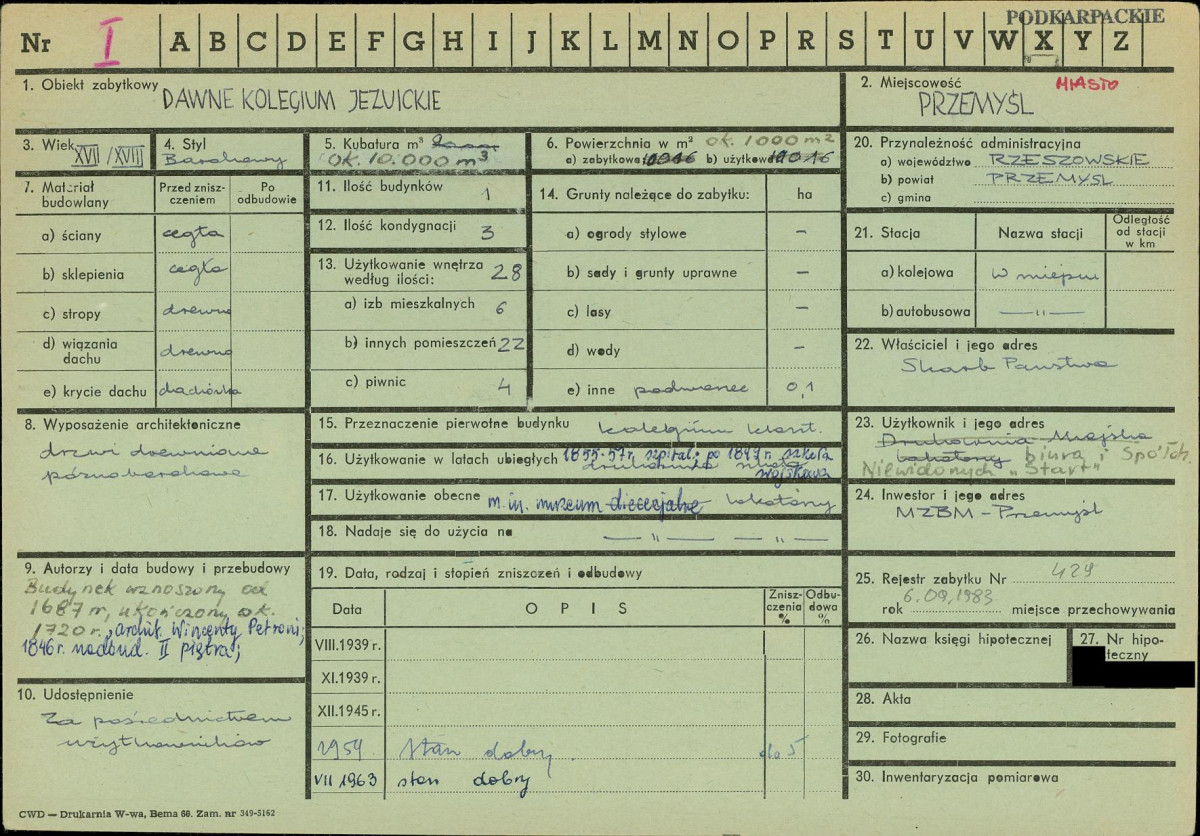 PODKARPACKIE
Nr I A B C D E F G H I J K L M N O P R S T U V W X Y Z
1. Obiekt zabytkowy DAWNE KOLEGIUM JEZUICKIE
2. Miejscowość MIASTO
PRZEMYŚL
3. Wiek XVII/XVIII
4. Styl
Barokowy
5. Kubatura m³
OK. 10.000 m³
6. Powierzchnia w m² ok. 1000 m²
a) zabytkowa b) użytkowa
7. Materiał budowlany
Przed zniszczeniem
Po odbudowie
a) ściany cegła
b) sklepienia cegła
c) stropy drewno
d) wiązania dachu drewno
e) krycie dachu dachówka
8. Wyposażenie architektoniczne
drzwi drewniane
późnobarokowe
9. Autorzy i data budowy i przebudowy
Budynek wznoszony od
1687 r, ukończony ok.
1720 r., archit. Wincenty Petroni;
1846 r. nadbud. II piętra;
10. Udostępnienie
Za pośrednictwem
użytkowników
11. Ilość budynków 1
12. Ilość kondygnacji 3
13. Użytkowanie wnętrza według ilości: 28
a) izb mieszkalnych 6
b) innych pomieszczeń 22
c) piwnic 4
14. Grunty należące do zabytku: ha
a) ogrody stylowe –
b) sady i grunty uprawne –
c) lasy –
d) wody –
e) inne podwórzec 0,1
15. Przeznaczenie pierwotne budynku kolegium klaszt.
16. Użytkowanie w latach ubiegłych 1855-57r. szpital; po 1849 r. szkoła
wojskowa
17. Użytkowanie obecne m. in. muzeum diecezjalne lokatorzy
18. Nadaje się do użycia na — " — — " —
19. Data, rodzaj i stopień zniszczeń i odbudowy
Data OPIS Zniszczenia % Odbudowa %
VIII.1939 r.
XI.1939 r.
XII.1945 r.
1959 Stan dobry. do 5
VII 1963 stan dobry
20. Przynależność administracyjna
a) województwo RZESZOWSKIE
b) powiat PRZEMYŚL
c) gmina
21. Stacja Nazwa stacji Odległość od stacji w km
a) kolejowa w miejscu
b) autobusowa — " —
22. Właściciel i jego adres
Skarb Państwa
23. Użytkownik i jego adres
Drukarnia Miejska
lokatorzy biura i Spółdz.
Niewidomych „Start"
24. Inwestor i jego adres
MZBM – Przemyśl
25. Rejestr zabytku Nr 429
rok 6.09.1983 miejsce przechowywania
26. Nazwa księgi hipotecznej
27. Nr hipoteczny
28. Akta
29. Fotografie
30. Inwentaryzacja pomiarowa
CWD — Drukarnia W-wa, Bema 60. Zam. nr 349-5162